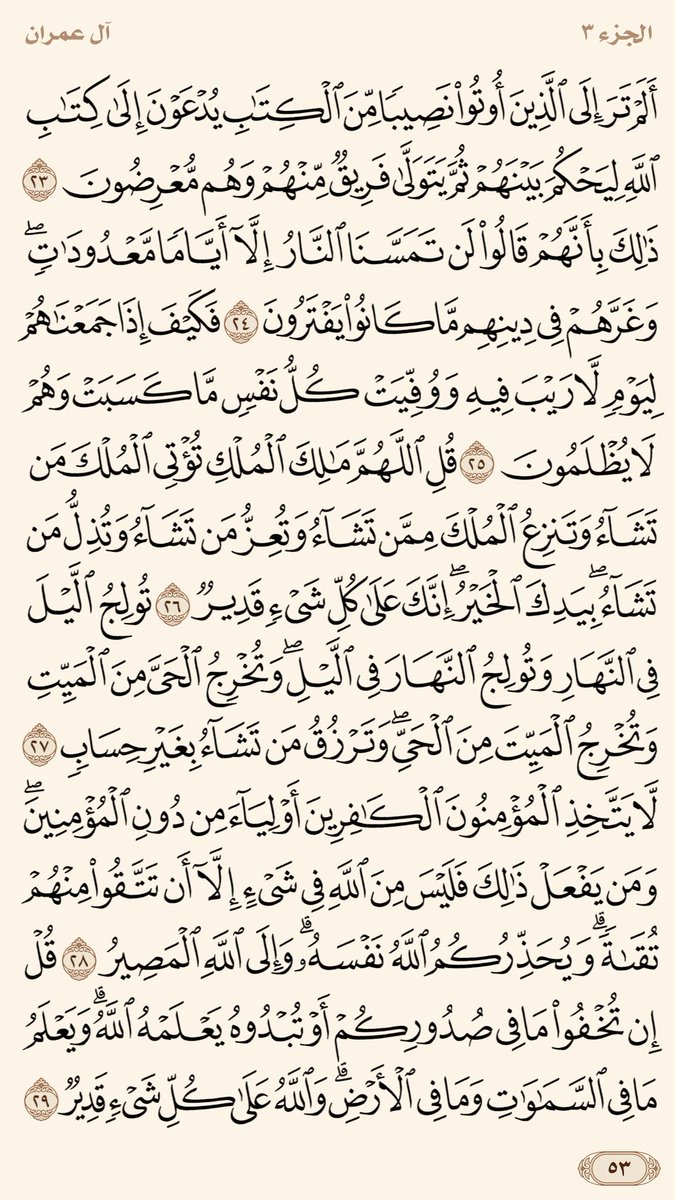 الجزء ٣
آل عمران
أَلَمۡ تَرَ إِلَى ٱلَّذِينَ أُوتُواْ نَصِيبٗا مِّنَ ٱلۡكِتَٰبِ يُدۡعَوۡنَ إِلَىٰ كِتَٰبِ
ٱللَّهِ لِيَحۡكُمَ بَيۡنَهُمۡ ثُمَّ يَتَوَلَّىٰ فَرِيقٞ مِّنۡهُمۡ وَهُم مُّعۡرِضُونَ ٢٣
ذَٰلِكَ بِأَنَّهُمۡ قَالُواْ لَن تَمَسَّنَا ٱلنَّارُ إِلَّآ أَيَّامٗا مَّعۡدُودَٰتٖۖ
وَغَرَّهُمۡ فِي دِينِهِم مَّا كَانُواْ يَفۡتَرُونَ ٢٤ فَكَيۡفَ إِذَا جَمَعۡنَٰهُمۡ
لِيَوۡمٖ لَّا رَيۡبَ فِيهِ وَوُفِّيَتۡ كُلُّ نَفۡسٖ مَّا كَسَبَتۡ وَهُمۡ
لَا يُظۡلَمُونَ ٢٥ قُلِ ٱللَّهُمَّ مَٰلِكَ ٱلۡمُلۡكِ تُؤۡتِي ٱلۡمُلۡكَ مَن
تَشَآءُ وَتَنزِعُ ٱلۡمُلۡكَ مِمَّن تَشَآءُ وَتُعِزُّ مَن تَشَآءُ وَتُذِلُّ مَن
تَشَآءُۖ بِيَدِكَ ٱلۡخَيۡرُۖ إِنَّكَ عَلَىٰ كُلِّ شَيۡءٖ قَدِيرٞ ٢٦ تُولِجُ ٱلَّيۡلَ
فِي ٱلنَّهَارِ وَتُولِجُ ٱلنَّهَارَ فِي ٱلَّيۡلِۖ وَتُخۡرِجُ ٱلۡحَيَّ مِنَ ٱلۡمَيِّتِ
وَتُخۡرِجُ ٱلۡمَيِّتَ مِنَ ٱلۡحَيِّۖ وَتَرۡزُقُ مَن تَشَآءُ بِغَيۡرِ حِسَابٖ ٢٧
لَّا يَتَّخِذِ ٱلۡمُؤۡمِنُونَ ٱلۡكَٰفِرِينَ أَوۡلِيَآءَ مِن دُونِ ٱلۡمُؤۡمِنِينَۖ
وَمَن يَفۡعَلۡ ذَٰلِكَ فَلَيۡسَ مِنَ ٱللَّهِ فِي شَيۡءٍ إِلَّآ أَن تَتَّقُواْ مِنۡهُمۡ
تُقَىٰةٗۗ وَيُحَذِّرُكُمُ ٱللَّهُ نَفۡسَهُۥۗ وَإِلَى ٱللَّهِ ٱلۡمَصِيرُ ٢٨ قُلۡ
إِن تُخۡفُواْ مَا فِي صُدُورِكُمۡ أَوۡ تُبۡدُوهُ يَعۡلَمۡهُ ٱللَّهُۗ وَيَعۡلَمُ
مَا فِي ٱلسَّمَٰوَٰتِ وَمَا فِي ٱلۡأَرۡضِۗ وَٱللَّهُ عَلَىٰ كُلِّ شَيۡءٖ قَدِيرٞ ٢٩
٥٣